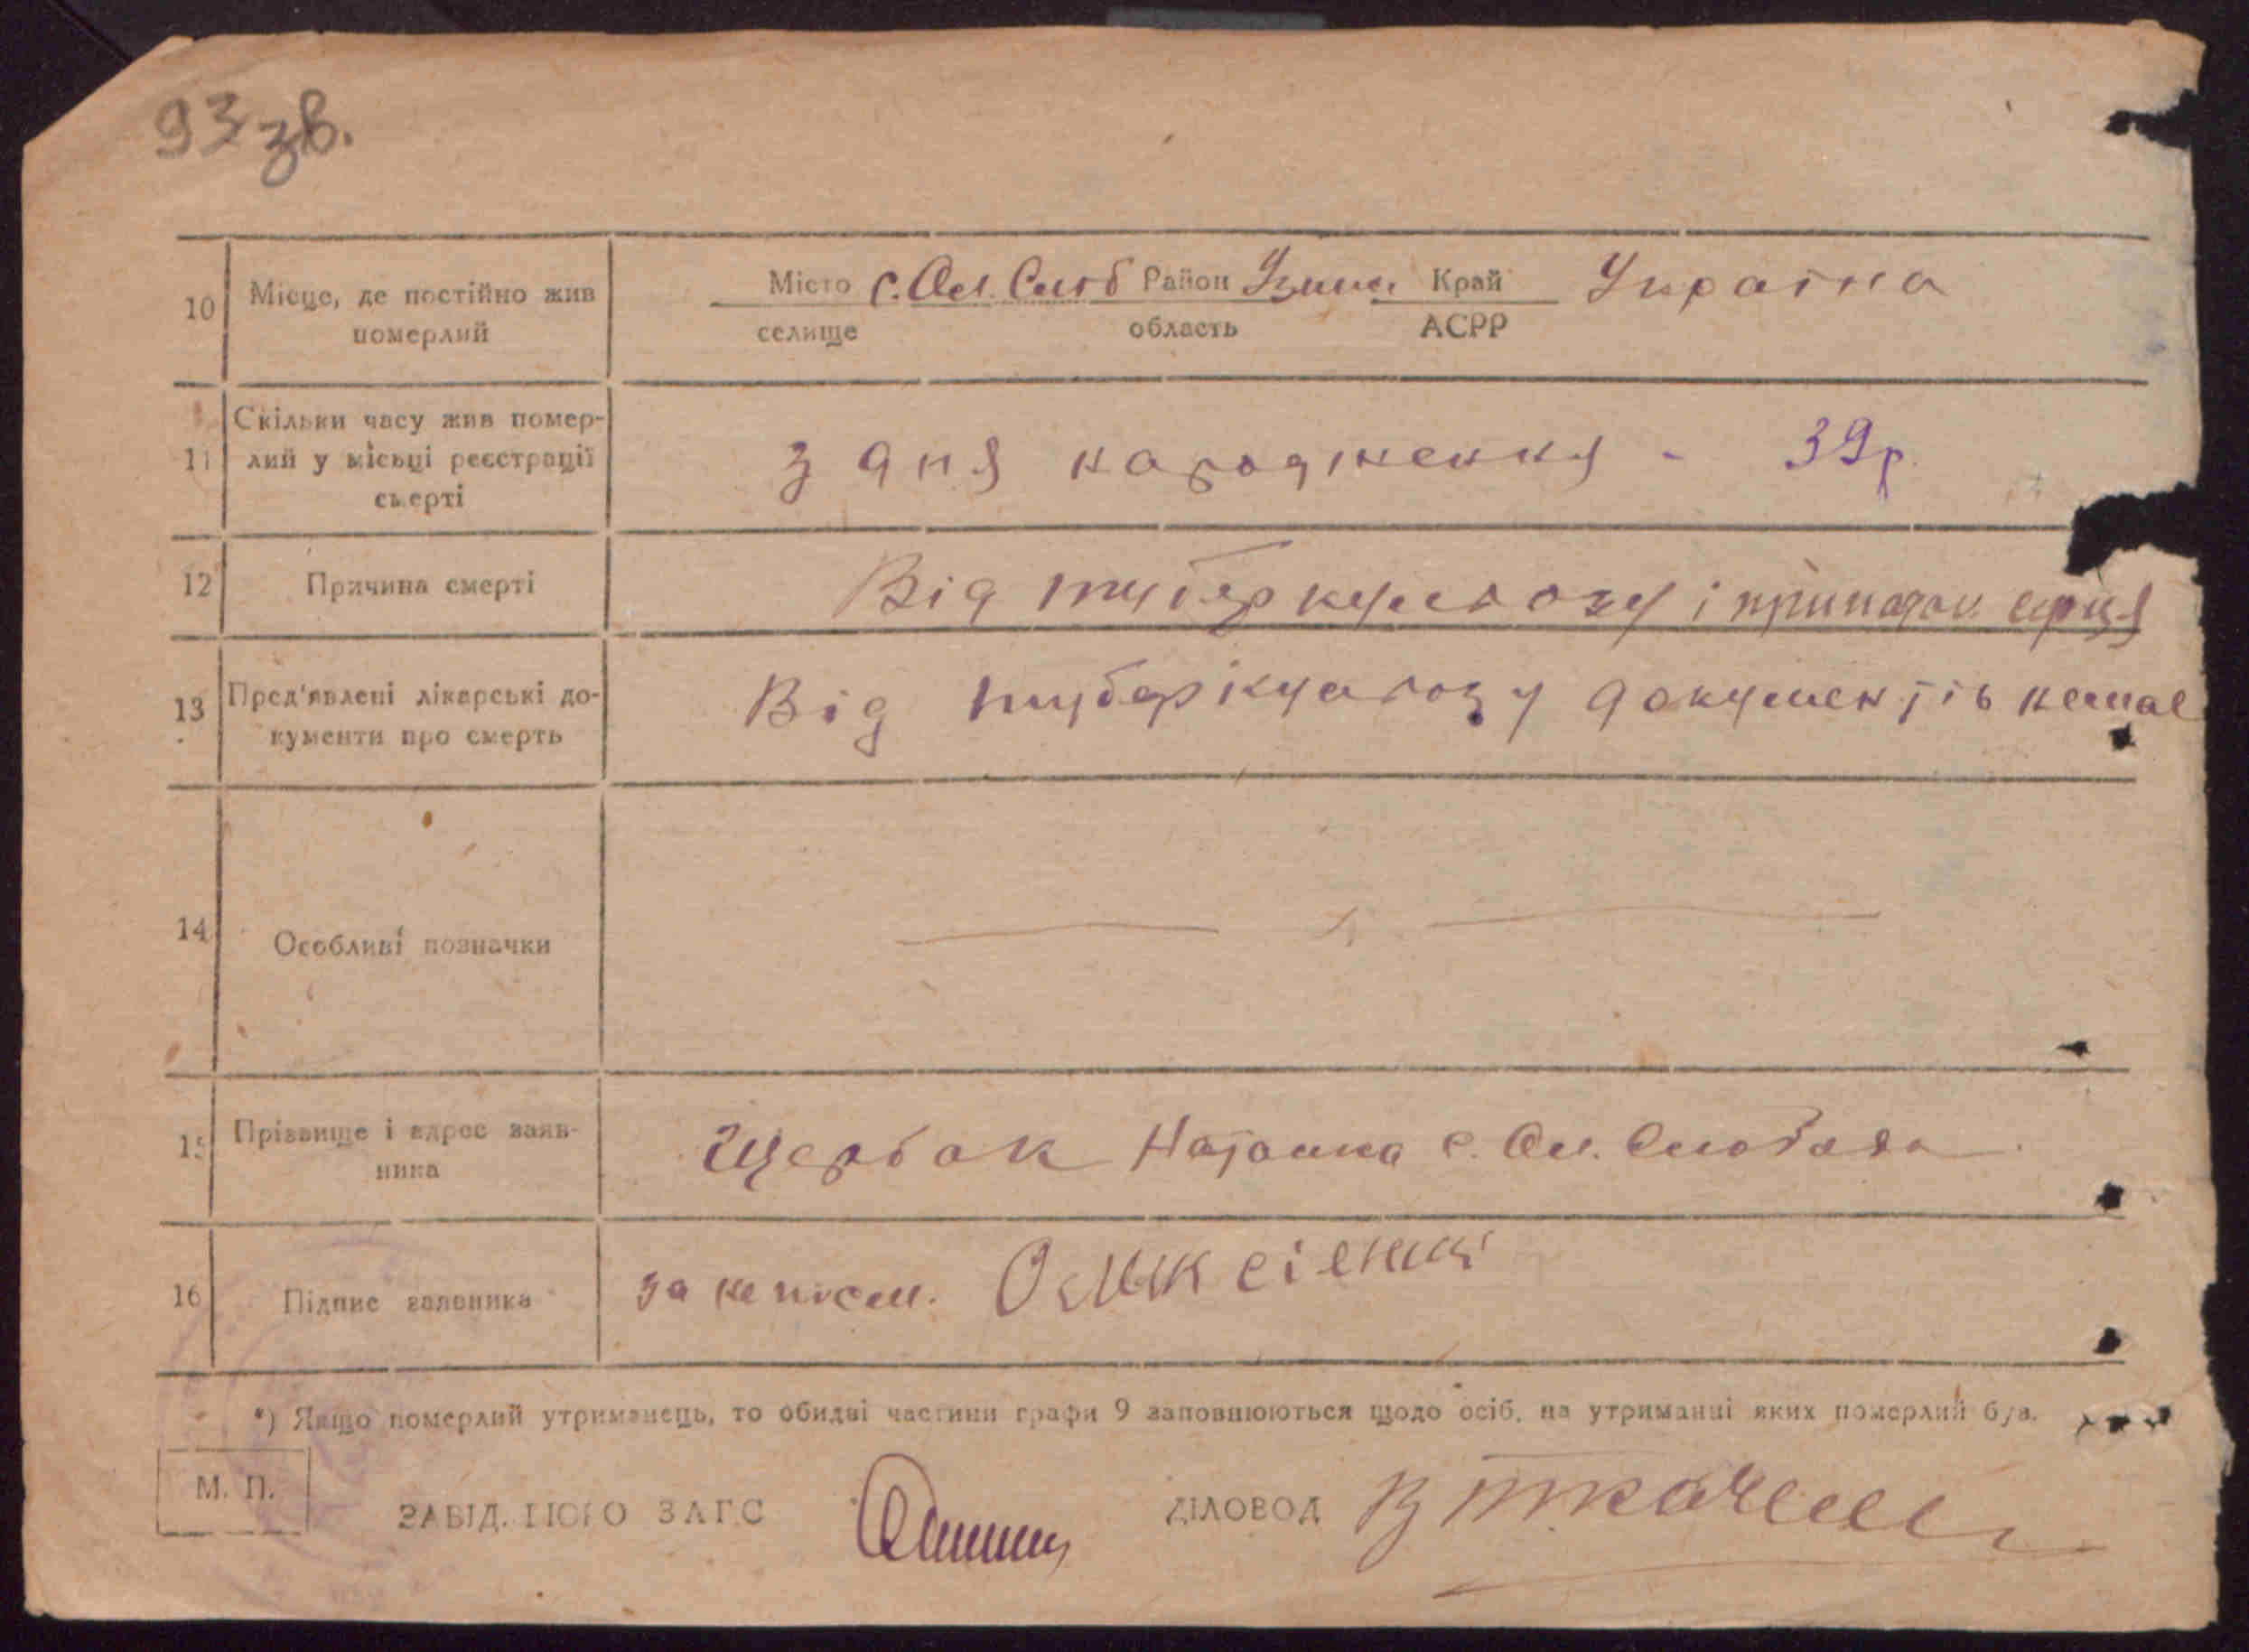 93 зв.
10 Місце, де постійно жив померлий
Місто с. Ол. Слоб Район Узин. Край Україна
селище область АСРР
11 Скільки часу жив помер-
лий у місьці реєстрації
смерті
з дня народження - 39 р.
12 Причина смерті
Від туберкульозу і припадок серця
13 Пред'явлені лікарські до-
кументи про смерть
Від туберкульозу документів немає
14 Особливі позначки
15 Прізвище і адрес заяв-
ника
Щербак Наталка с. Ол. Слобода
16 Підпис заявника
за не писм.
*) Якщо померлий утриманець, то обидві частини графи 9 заповнюються щодо осіб, на утриманні яких померлий був.
М. П.
ЗАВІД. БЮРО ЗАГС
ДІЛОВОД В Ткаченко